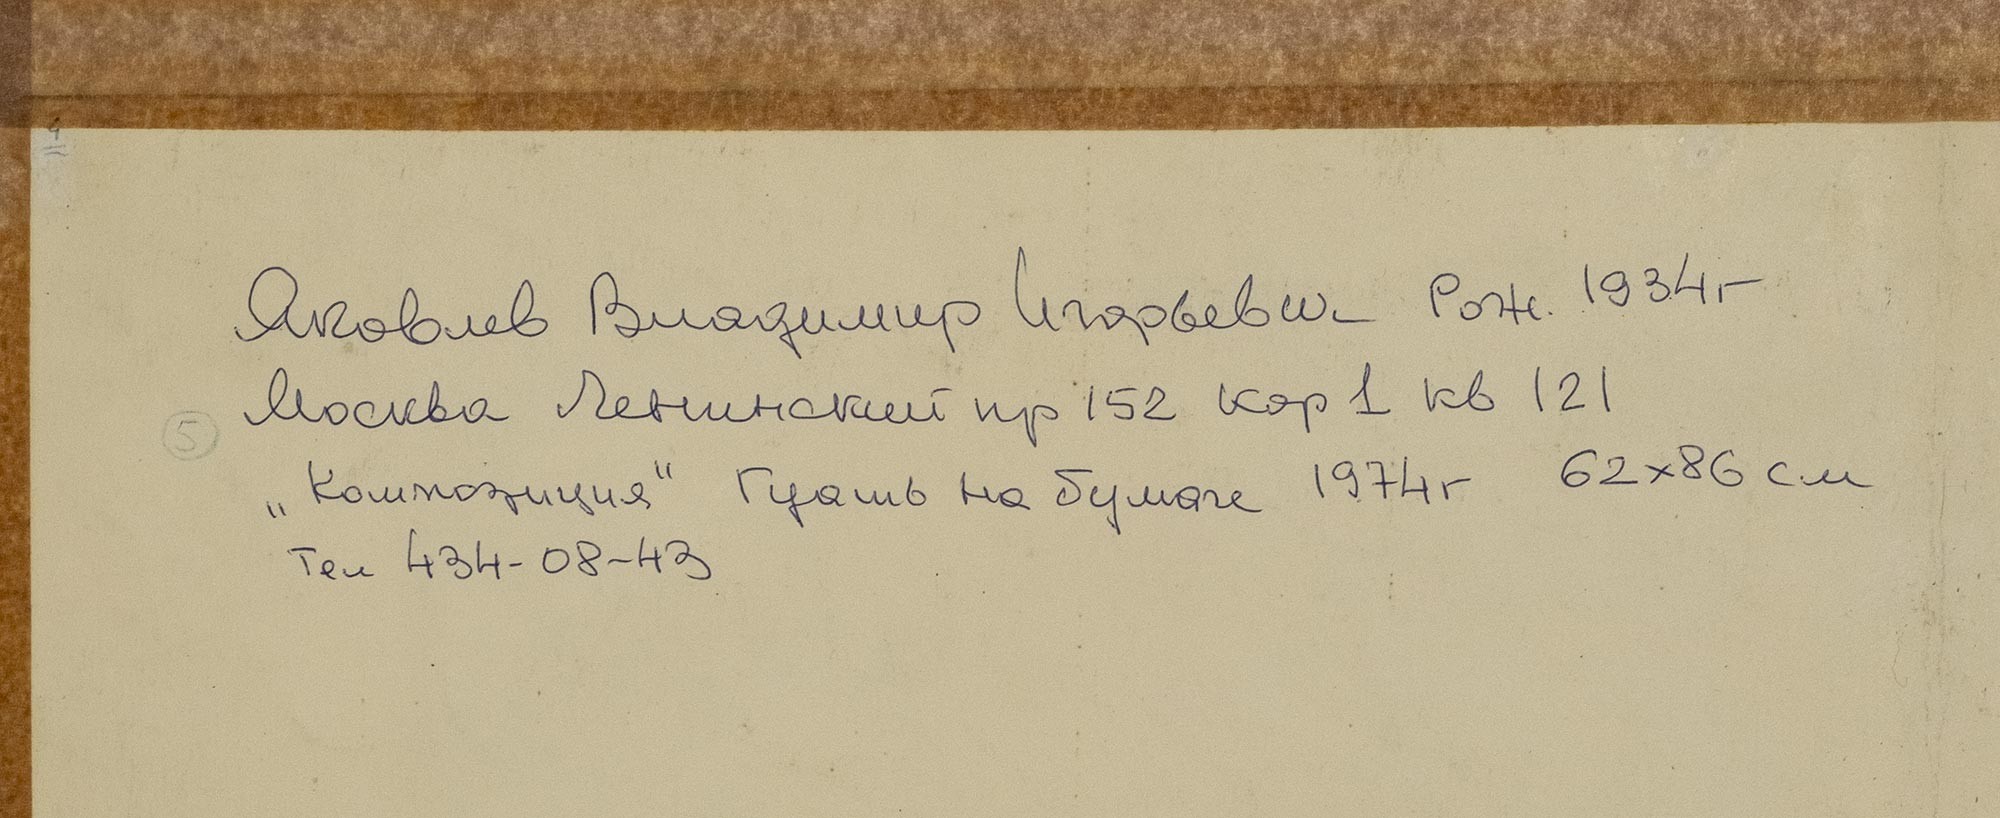 Яковлев Владимир Игорьевич Рож. 1934г
Москва Ленинский пр 152 кор 1 кв 121
5
„Композиция“ Гуашь на бумаге 1974г 62×86 см
Тел 434-08-43